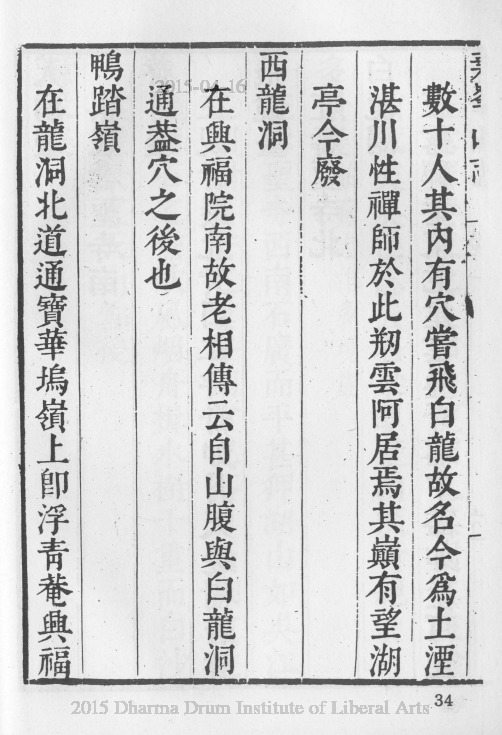 數十人其内有穴嘗飛白龍故名今爲土湮
湛川性禪師於此剏雲阿居焉其巔有望湖
亭今廢
西龍洞
在興福院南故老相傳云自山腹與白龍洞
通葢穴之後也
鴨踏嶺
在龍洞北道通寶華塢嶺上卽浮青菴興福
34
2015-04-16
2015 Dharma Drum Institute of Liberal Arts